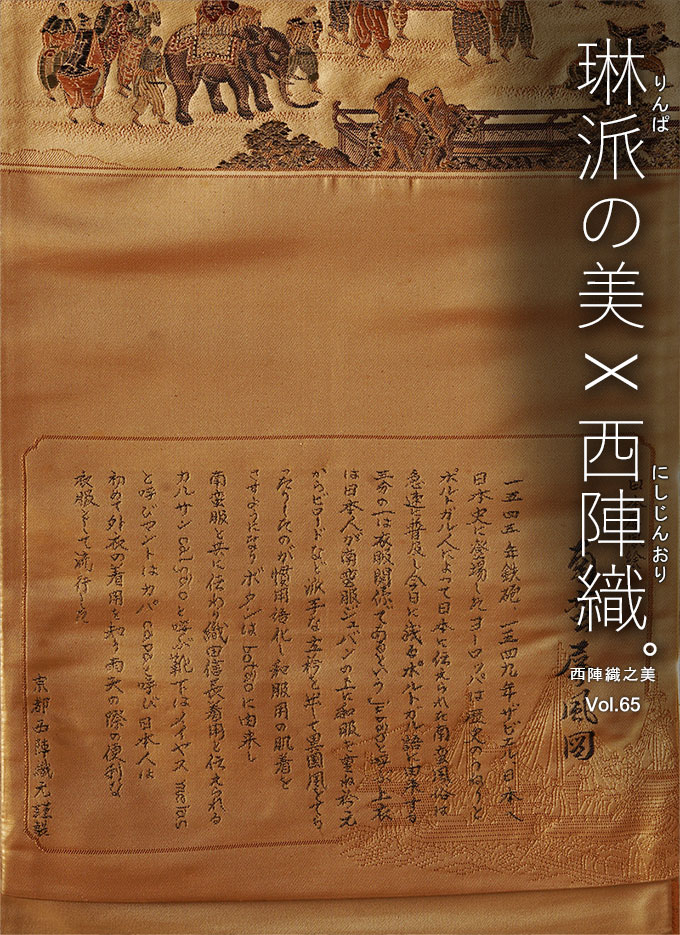 琳派の美×西陣織。
りんぱ
にしじんおり
西陣織之美
Vol.65
屏風図
一五四五年鉄砲 一五四九年ザビエル日本へ
日本史に登場したヨーロッパは歴史のうねりと
ポルトガル人によって日本に伝えられた南蛮風俗は
急速に普及し今日に残るポルトガル語に由来する
三分の一は衣服関係であるという と呼ぶ上衣
は日本人が南蛮服ジュバンの上に和服を重ね衿元
からビロードなど派手な立衿を 異国風を
ったりしたのが慣用語化し和服用の肌着を
さすようになり ボタンは に由来し
南蛮服と共に伝わり織田信長着用と伝えられる
カルサン と呼ぶ靴下はメイヤス meias
と呼びマントはカパ capaと呼び日本人は
初めて外衣の着用を知り雨天の際の便利な
衣服として流行した
京都西陣織元謹製